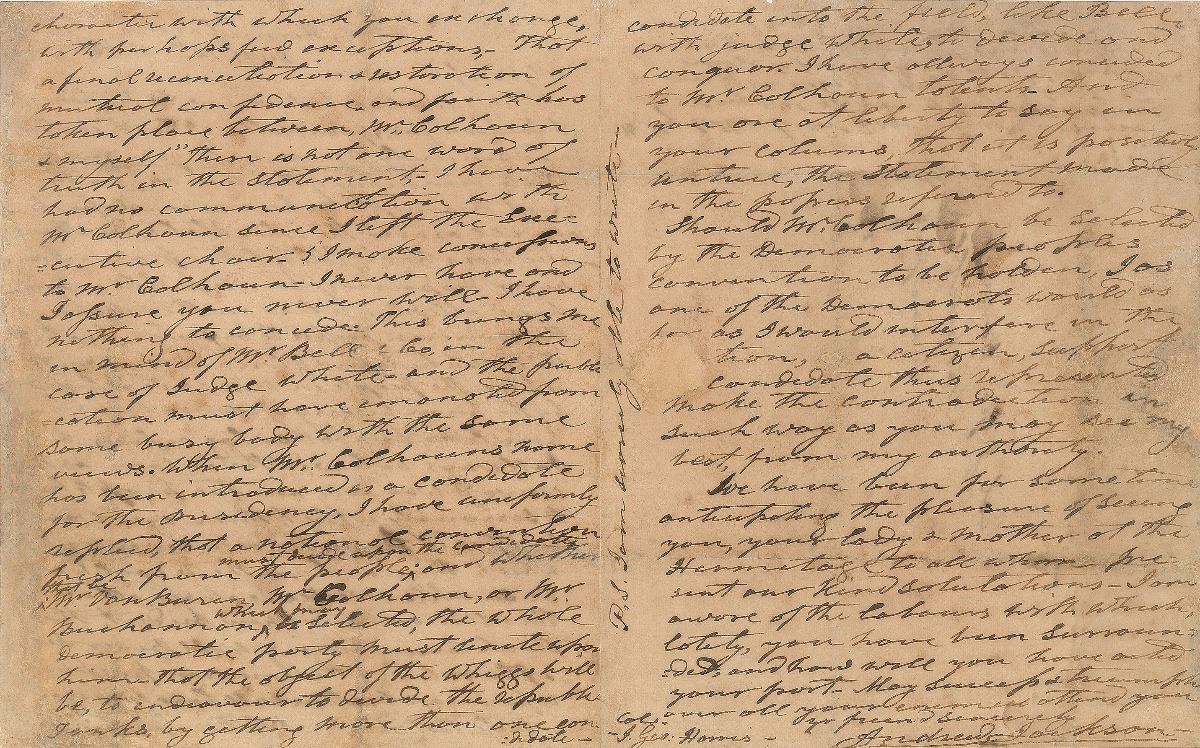 character with which you exchange,
with perhaps few exceptions,- That
a final reconciliation & restoration of
mutual confidence and faith has
taken place between, Mr. Calhoun
& myself" there is not one word of
truth in the statement,- I have
had no communication with
Mr Calhoun since I left the Exe-
=cutive chair- & I make concessions
to Mr Calhoun- I never have and
I assure you never will- I have
nothing to concede. This brings me
in mind of Mr Bell & Co, in the
case of Judge White- and the publi
=cation must have emanated from
some busy body with the same
views. When Mr. Calhouns name
has been introduced as a candidate
for the Presidency, I have uniformly
replied, that a national convention
must decide upon the candidate
fresh from the people, and whether
Mr Van Buren, Mr. Calhoun, or Mr
which may
Buchannon, is selected, the whole
democratic party must unite upon
him- that the object of the Whiggs will
be, to endeavour to divide the republi
ranks, by getting more than one can
=didate-
P.S. I am as only able to write-
candidate into the field, like Bell
with judge White, to devide and
conquer. I have allways conceded
to Mr Calhoun talents- And
you are at liberty to say in
your colums, that it is positively
untrue, the Statement made
in the papers refered to.
Should Mr. Calhoun be selected
by the Democratic peoples
convention to be holden, I as
one of the Democrats would as
far as I would interfere in the
tion, a citizen, support
candidate thus represented
make the contradiction in
such way as you may seem
best, from my authority.
We have been for some time
anticipating the pleasure of seeing
you, your lady & mother at the
Hermitage to all whom pre-
sent our kind salutations- I am
aware of the labours with which,
lately, you have been surroun-
=ded, and how well you have acted
your part- May success & triumph
over all your enemies attend you
yr friend sincerely
Andrew Jackson
Col.
J. Geo. Harris-